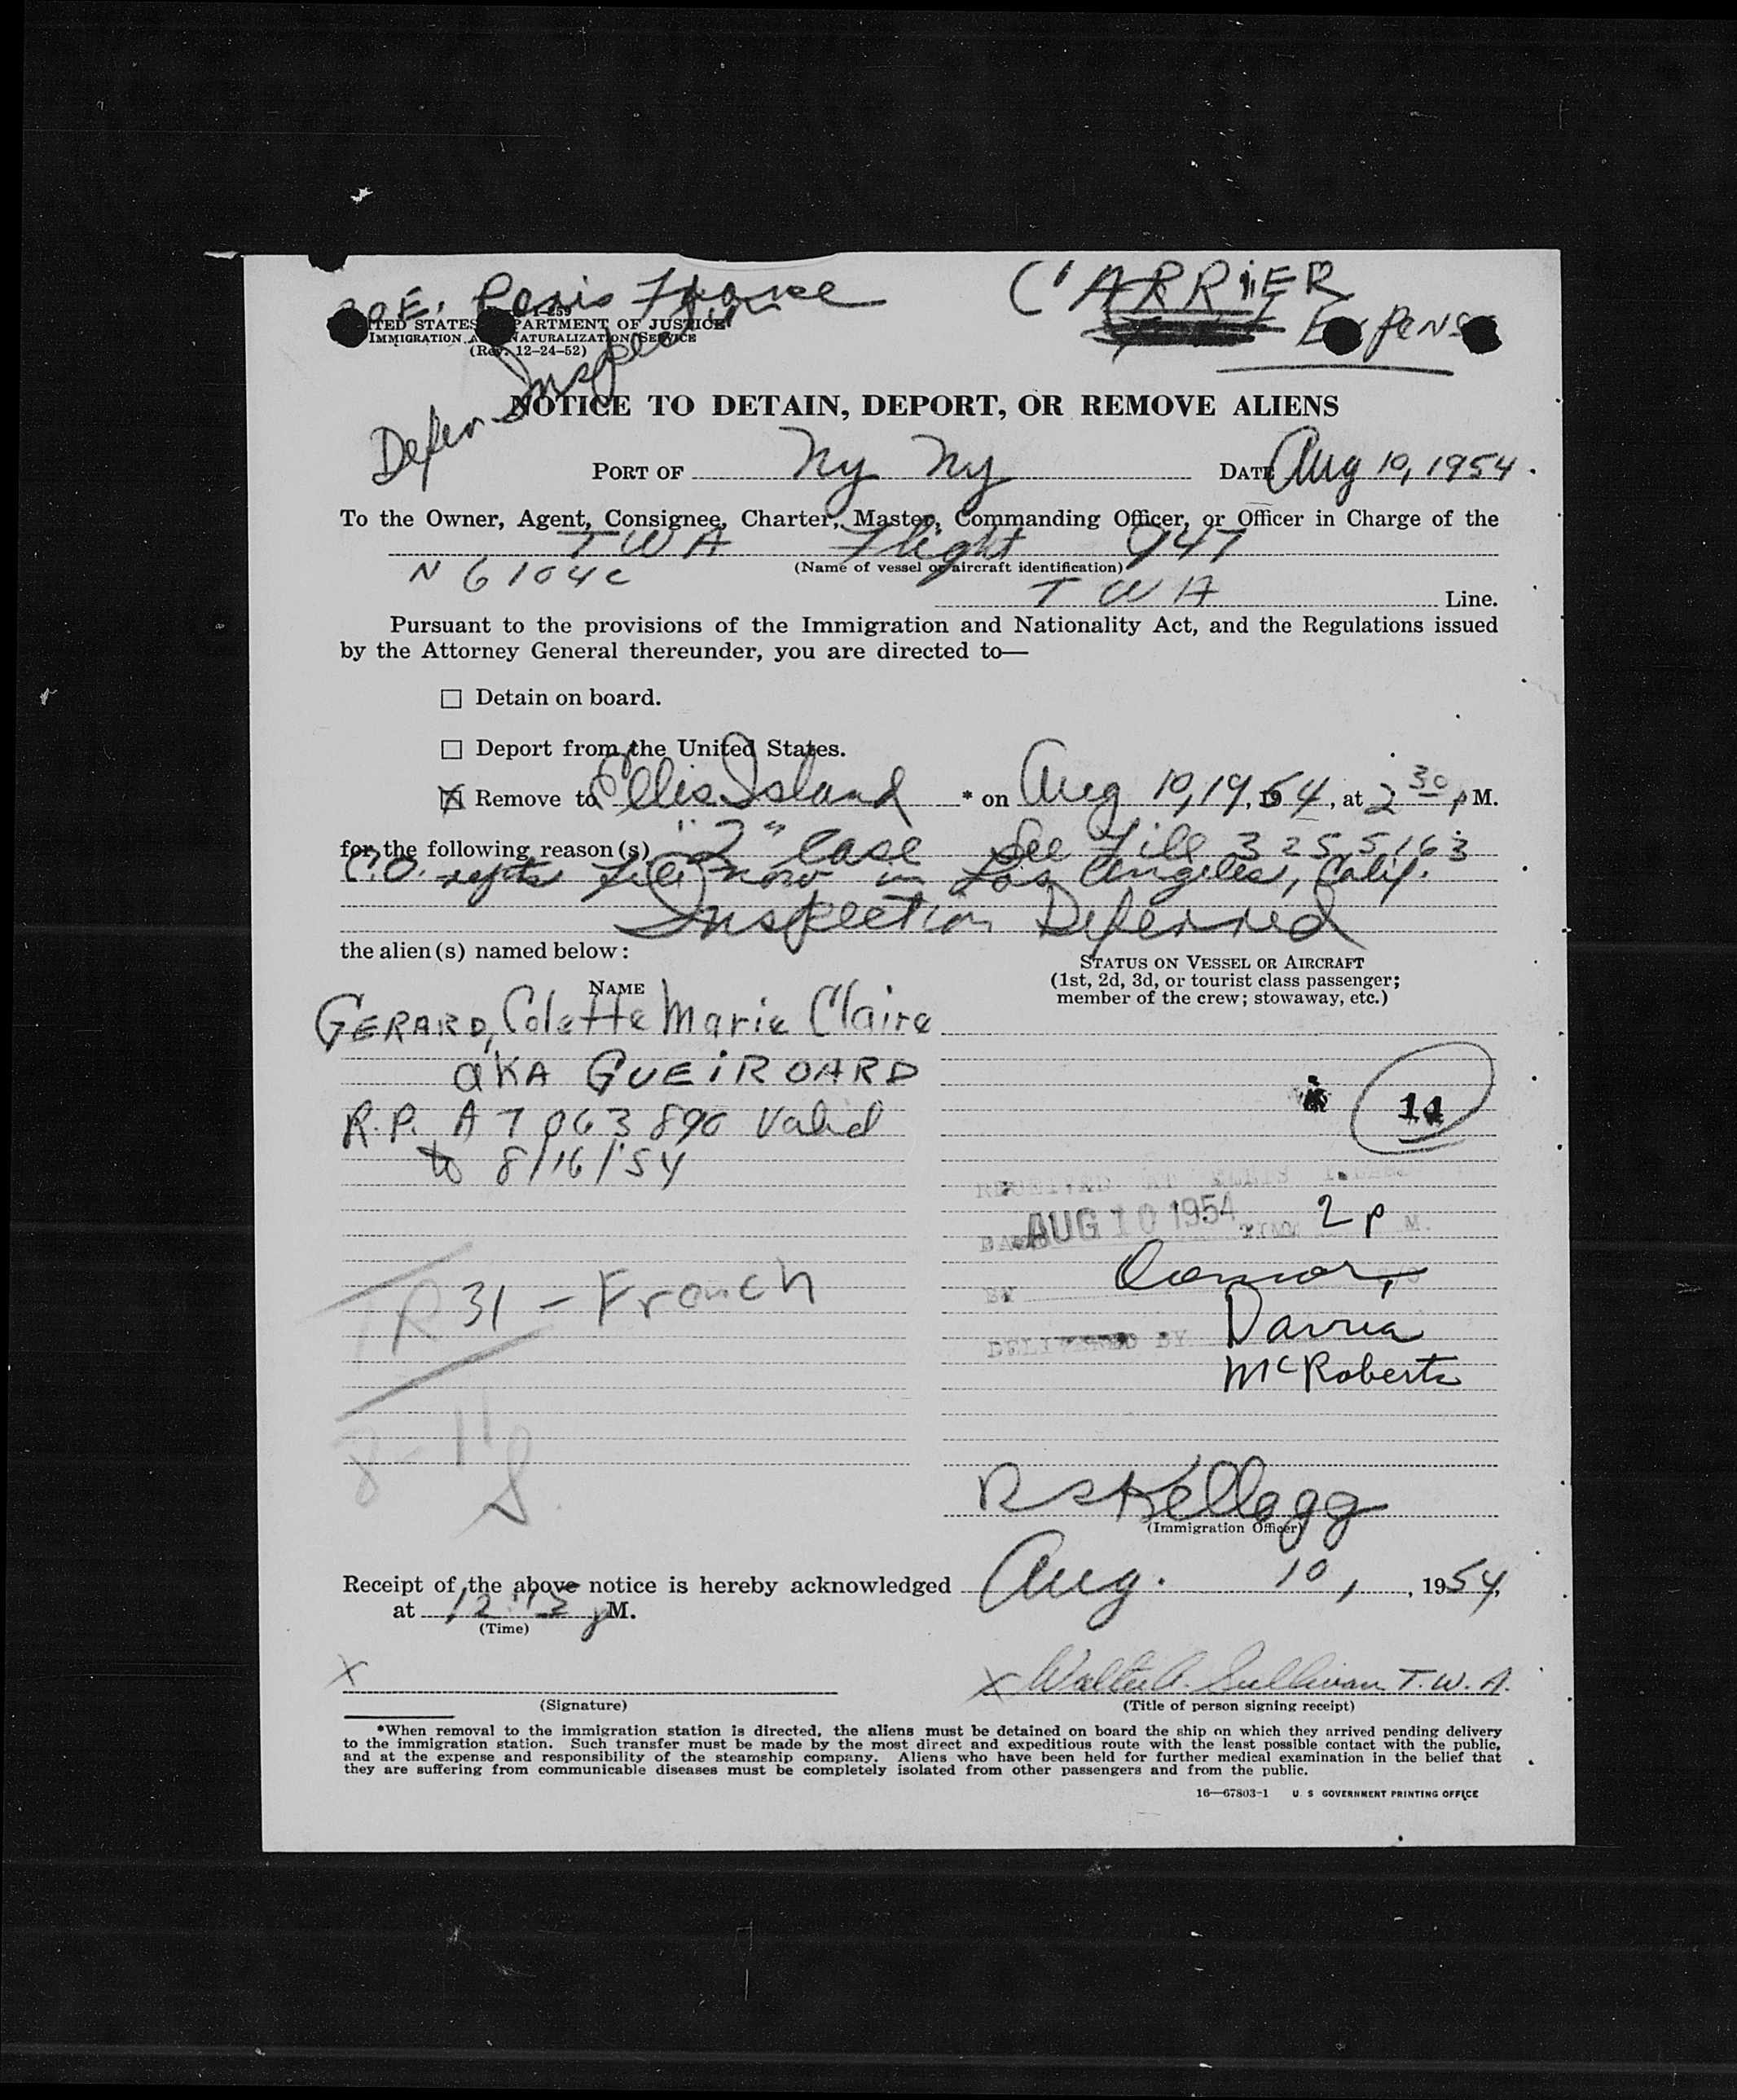 P.O.E. Paris France
CARRIER
Expense
I-259
UNITED STATES DEPARTMENT OF JUSTICE
IMMIGRATION AND NATURALIZATION SERVICE
(Rev. 12-24-52)
Defer Inspection
NOTICE TO DETAIN, DEPORT, OR REMOVE ALIENS
PORT OF NY NY DATE Aug 10, 1954.
To the Owner, Agent, Consignee, Charter, Master, Commanding Officer, or Officer in Charge of the
TWA Flight 947
(Name of vessel or aircraft identification)
N6104C
TWA Line.
Pursuant to the provisions of the Immigration and Nationality Act, and the Regulations issued
by the Attorney General thereunder, you are directed to—
☐ Detain on board.
☐ Deport from the United States.
☒ Remove to Ellis Island * on Aug 10, 19, 1954, at 2 30 p M.
for the following reason(s) "2" Case See File 3255163
C.O. repts File now in Los Angeles, Calif.
Inspection Deferred
the alien(s) named below:
NAME
STATUS ON VESSEL OR AIRCRAFT
(1st, 2d, 3d, or tourist class passenger;
member of the crew; stowaway, etc.)
GERARD, Colette Marie Claire
aKA GUEiROARD
R.P. A7 063 890 Valid
to 8/16/54
14
RECEIVED AT ELLIS ISLAND
DATE AUG 10 1954 TIME 2 p M.
BY
DELIVERED BY Davua
McRoberts
R 31 - French
8-11
R S Kellogg
(Immigration Officer)
Receipt of the above notice is hereby acknowledged Aug. 10, , 1954,
at 12:15 p M.
(Time)
X
(Signature)
X Walter A. Sullivan T.W.A.
(Title of person signing receipt)
*When removal to the immigration station is directed, the aliens must be detained on board the ship on which they arrived pending delivery
to the immigration station. Such transfer must be made by the most direct and expeditious route with the least possible contact with the public,
and at the expense and responsibility of the steamship company. Aliens who have been held for further medical examination in the belief that
they are suffering from communicable diseases must be completely isolated from other passengers and from the public.
16—67803-1 U. S GOVERNMENT PRINTING OFFICE